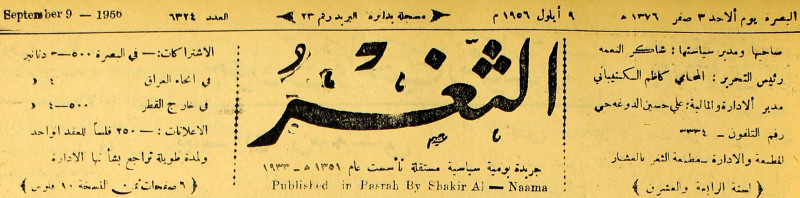 البصرة يوم الاحد ٣ صفر ١٣٧٦ ھ
٩ أيلول ١٩٥٦ م
مسجلة بدائرة البريد رقم ٢٣
العدد ٦٣٢٤
September 9 — 1956
صاحبها ومدير سياستها: شاكر النعمه
رئيس التحرير: المحامي كاظم المكتبباني
مدير الادارة والمالية: علي حسين الدوغه جي
رقم التلفون - ٣٣٣٤
المطبعة والادارة - مطبعة الثغر بالعشار
﴿ لسنة الرابعة والعشرن ﴾
الثغر
جريدة يومية سياسية مستقلة تأسست عام ١٣٥١ ھ - ١٩٣٣
Published in Basrah By Shakir Al — Naama
الاشتراكات: - في البصرة ٥٠٠-٣ دنانير
في انحاء العراق ٤ د
في خارج القطر ٥٠٠-٤ د
الاعلانات: - ٢٥٠ فلساً للعقد الواحد
ولمدة طويلة تراجع بشأنها الادارة
﴿ ٦ صفحات ثمن النسخة ١٠ فلوس ﴾